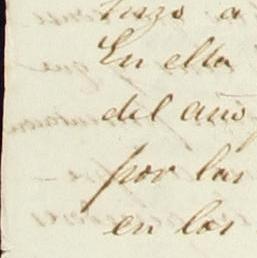 hizo a
En ella
del año
por las
en los